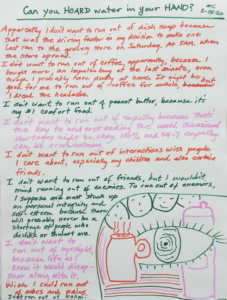 Can you HOARD water in your HAND?
Apparently I don't want to run out of dish soap because
that was the driving factor in my decision to make one
last run to the grocery store on Saturday. At 5AM, when
the store opened.
I don't want to run out of coffee, apparently, because I
bought more, an impulse buy at the last minute, even
though I probably have plenty at home. It might be but
good for me to run out of coffee for awhile,
I dread the headache.
I don't want to run out of peanut butter, because it's
my #1 comfort food.
I don't want to run out of empathy because that's
the key to understanding that world.
can be overwhelming.
I don't want to run out of interactions with people
I care about, especially my children and also certain
friends.
I don't want to run out of friends, but I wouldn't
mind running out of enemies. To run out of enemies,
I suppose one must stock up
on personal integrity and
self-esteem because there
will probably never be a
shortage of people who
dislike or
I don't want to
run out of eyesight,
because life as I
knew it would disap-
pear along with it.
Wish I could run out
of aches and pains.
I'll run out of room.